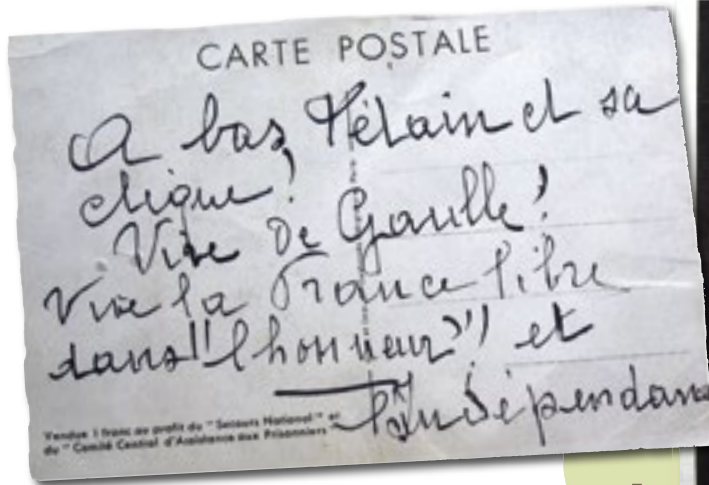 CARTE POSTALE
A bas Pétain et sa
clique!
Vive De Gaulle!
Vive la France libre
dans "l'honneur" et
l'Indépendance
Vendue 1 franc au profit du "Secours National" et
du "Comité Central d'Assistance aux Prisonniers